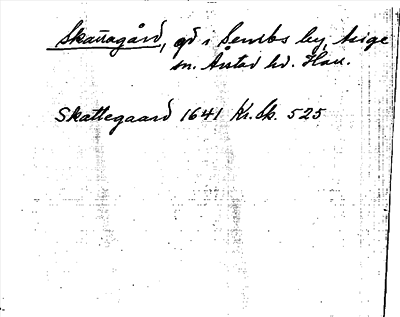 Skattagård, gd i Sembs by, Kige
sn. Årstad hd. Hall.
Skattegaard 1641 Kr.Sk. 525